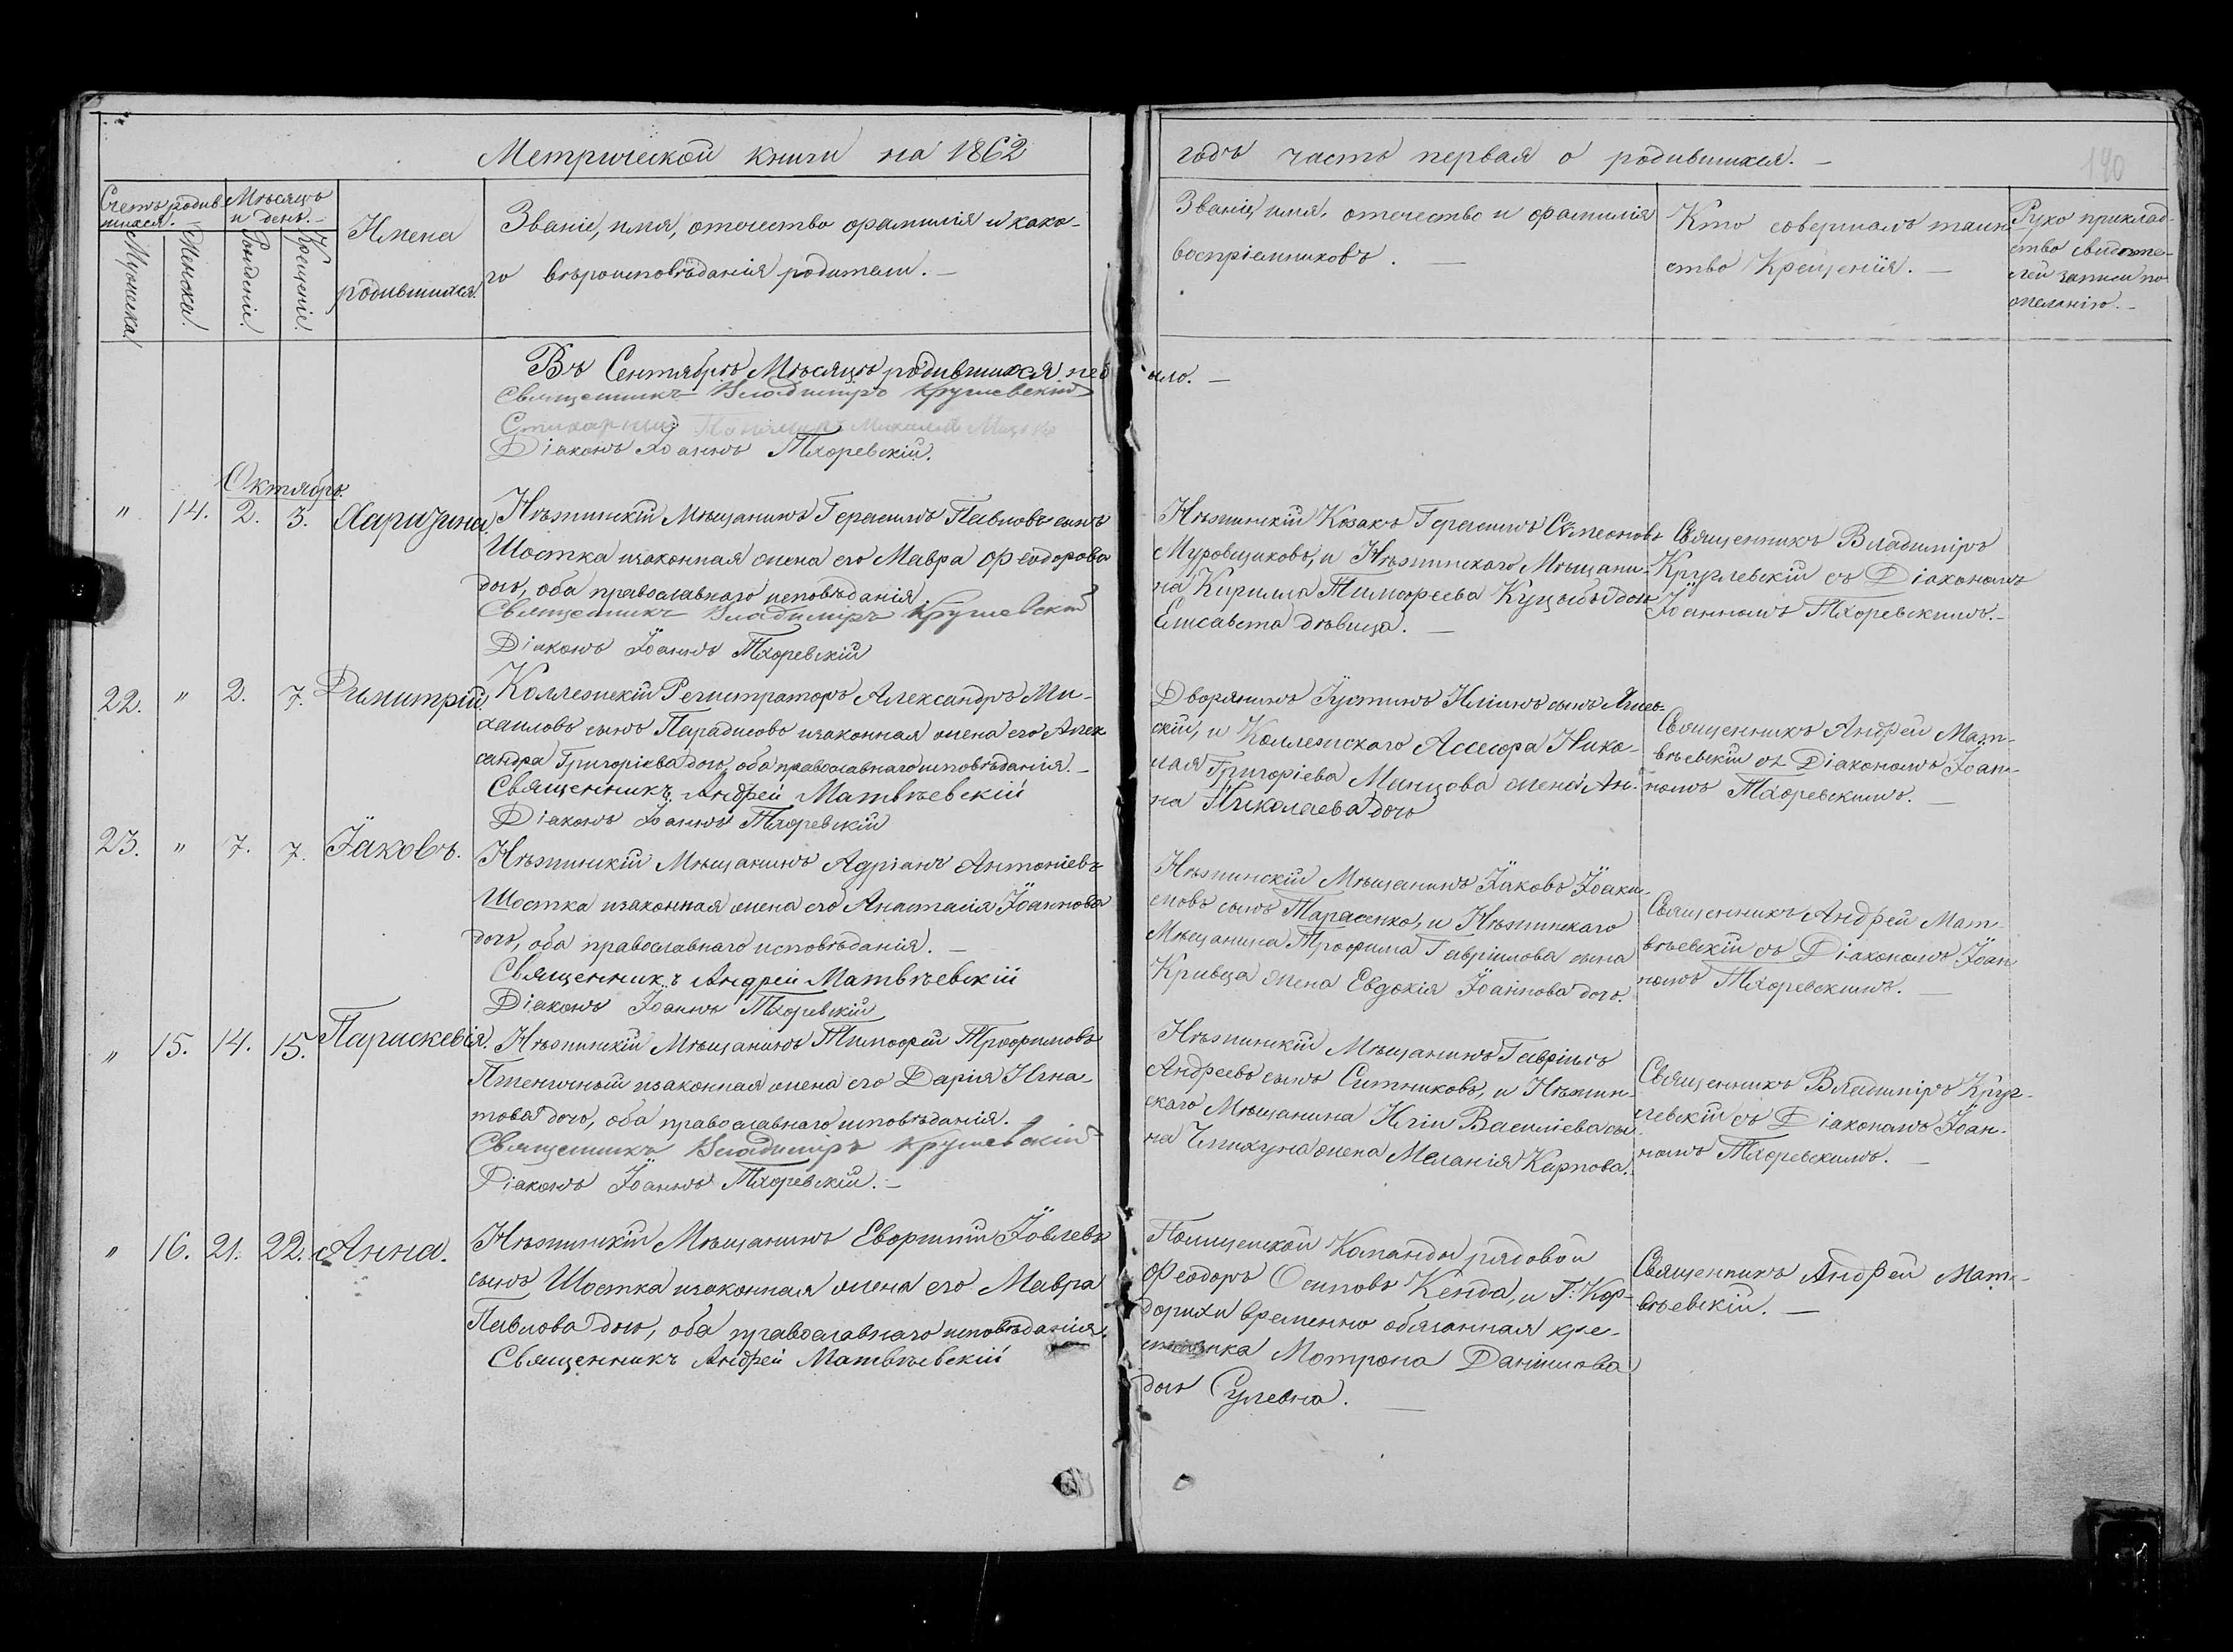 Метрической книги на 1862
годъ часть первая о родившихся. —
190
Счетъ родив
шихся. —
Мѣсяцъ
и день. —
Мужеска.
Женска.
Рожденіе.
Крещеніе.
Имена
родившихся.
Званіе, имя, отечество фамилія и како-
го вѣроисповѣданія родители. —
Званіе, имя, отечество и фамилія
воспріемниковъ. —
Кто совершалъ таин-
ство Крещенія. —
Руко приклад-
ство свидѣте-
лей записи по
желанію. —
Въ Сентябрѣ Мѣсяцѣ родившихся неб
ыло. —
Священникъ Владиміръ Круглевскій
Стихарный Михаилъ
Діаконъ Іоаннъ Тхоревскій.
Октябрь.
" 14. 2. 3. Харитина.
Нѣжинскій Мѣщанинъ Герасимъ Павловъ сынъ
Шостка изаконная жена его Мавра Феодорова
дочь, оба православнаго исповѣданія.
Священникъ Владиміръ Круглевскій
Діаконъ Іоаннъ Тхоревскій
Нѣжинскій Козакъ Герасимъ Сѵмеоновъ
Муровщиковъ, и Нѣжинскаго Мѣщани-
на Кирилла Тимофеева дочь
Елисавета дѣвица. —
Священникъ Владиміръ
Круглевскій съ Діакономъ
Іоанномъ Тхоревскимъ. —
22. " 2. 7. Димитрій
Коллежскій Регистраторъ Александръ Ми-
хаиловъ сынъ Парадисовъ изаконная жена его Алек
сандра Григоріева дочь, оба православнаго исповѣданія. —
Священникъ Андрей Матвѣевскій
Діаконъ Іоаннъ Тхоревскій
Дворянинъ Іустинъ Иліинъ сынъ
скій, и Коллежскаго Ассесора Нико-
лая Григоріева Манцова жена Ан-
на Николаева дочь
Священникъ Андрей Мат-
вѣевскій съ Діакономъ Іоан-
номъ Тхоревскимъ. —
23. " 7. 7. Іаковъ.
Нѣжинскій Мѣщанинъ Адріанъ Антоніевъ
Шостка изаконная жена его Анастасія Іоаннова
дочь, оба православнаго исповѣданія. —
Священникъ Андрей Матвѣевскій
Діаконъ Іоаннъ Тхоревскій
Нѣжинскій Мѣщанинъ Іаковъ Іоаки-
мовъ сынъ Тарасенко, и Нѣжинскаго
Мѣщанина Трофима Гавріилова сына
Кривца жена Евдокія Іоаннова дочь.
Священникъ Андрей Мат-
вѣевскій съ Діакономъ Іоан
номъ Тхоревскимъ. —
" 15. 14. 15. Параскевія.
Нѣжинскій Мѣщанинъ Тимофей Трофимовъ
Пшеничный изаконная жена его Дарія Игна-
това дочь, оба православнаго исповѣданія.
Священникъ Владиміръ Круглевскій
Діаконъ Іоаннъ Тхоревскій. —
Нѣжинскій Мѣщанинъ Гавріилъ
Андреевъ сынъ Ситниковъ, и Нѣжин-
скаго Мѣщанина Иліи Василіева сы-
на Чепихуна жена Меланія Карпова.
Священникъ Владиміръ Круг-
левскій съ Діакономъ Іоан-
номъ Тхоревскимъ. —
" 16. 21. 22. Анна.
Нѣжинскій Мѣщанинъ Евфимій Іовлевъ
сынъ Шостка изаконная жена его Мавра
Павлова дочь, оба православнаго исповѣданія.
Священникъ Андрей Матвѣевскій
Полицейской Команды рядовой
Феодоръ Осиповъ Кенда, и Г. Кор-
дорихи временно обязанная кре-
стьянка Мотрона Даніилова
дочь Сулевна. —
Священникъ Андрей Мат-
вѣевскій. —